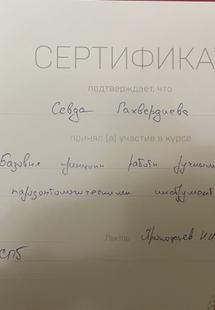 СЕРТИФИКА
подтверждает, что
Севда Гахвердиева
принял (а) участие в курсе
Базовие принципи работи ручными
пародонтологическими инструмент
Лектор Прокофьев И.И
СПб